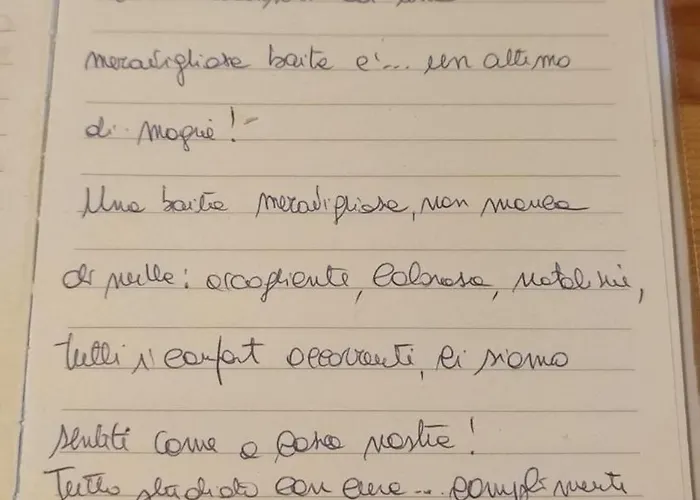 meravigliosa baita e'... un attimo
di magia!
Una baita meravigliosa, non manca
di nulla: accogliente, calorosa,
tutti i confort occorrenti, ci siamo
sentiti come a casa nostra!
Tutto studiato con cura... complimenti